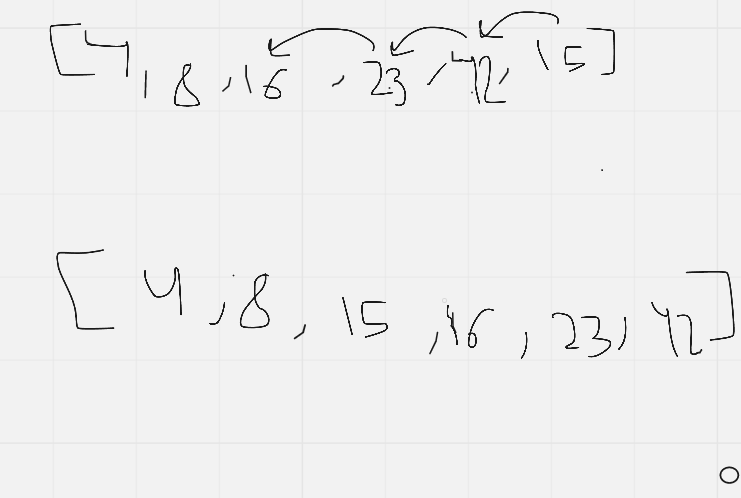 [4, 8, 16, 23, 42, 15]
[4, 8, 15, 16, 23, 42]